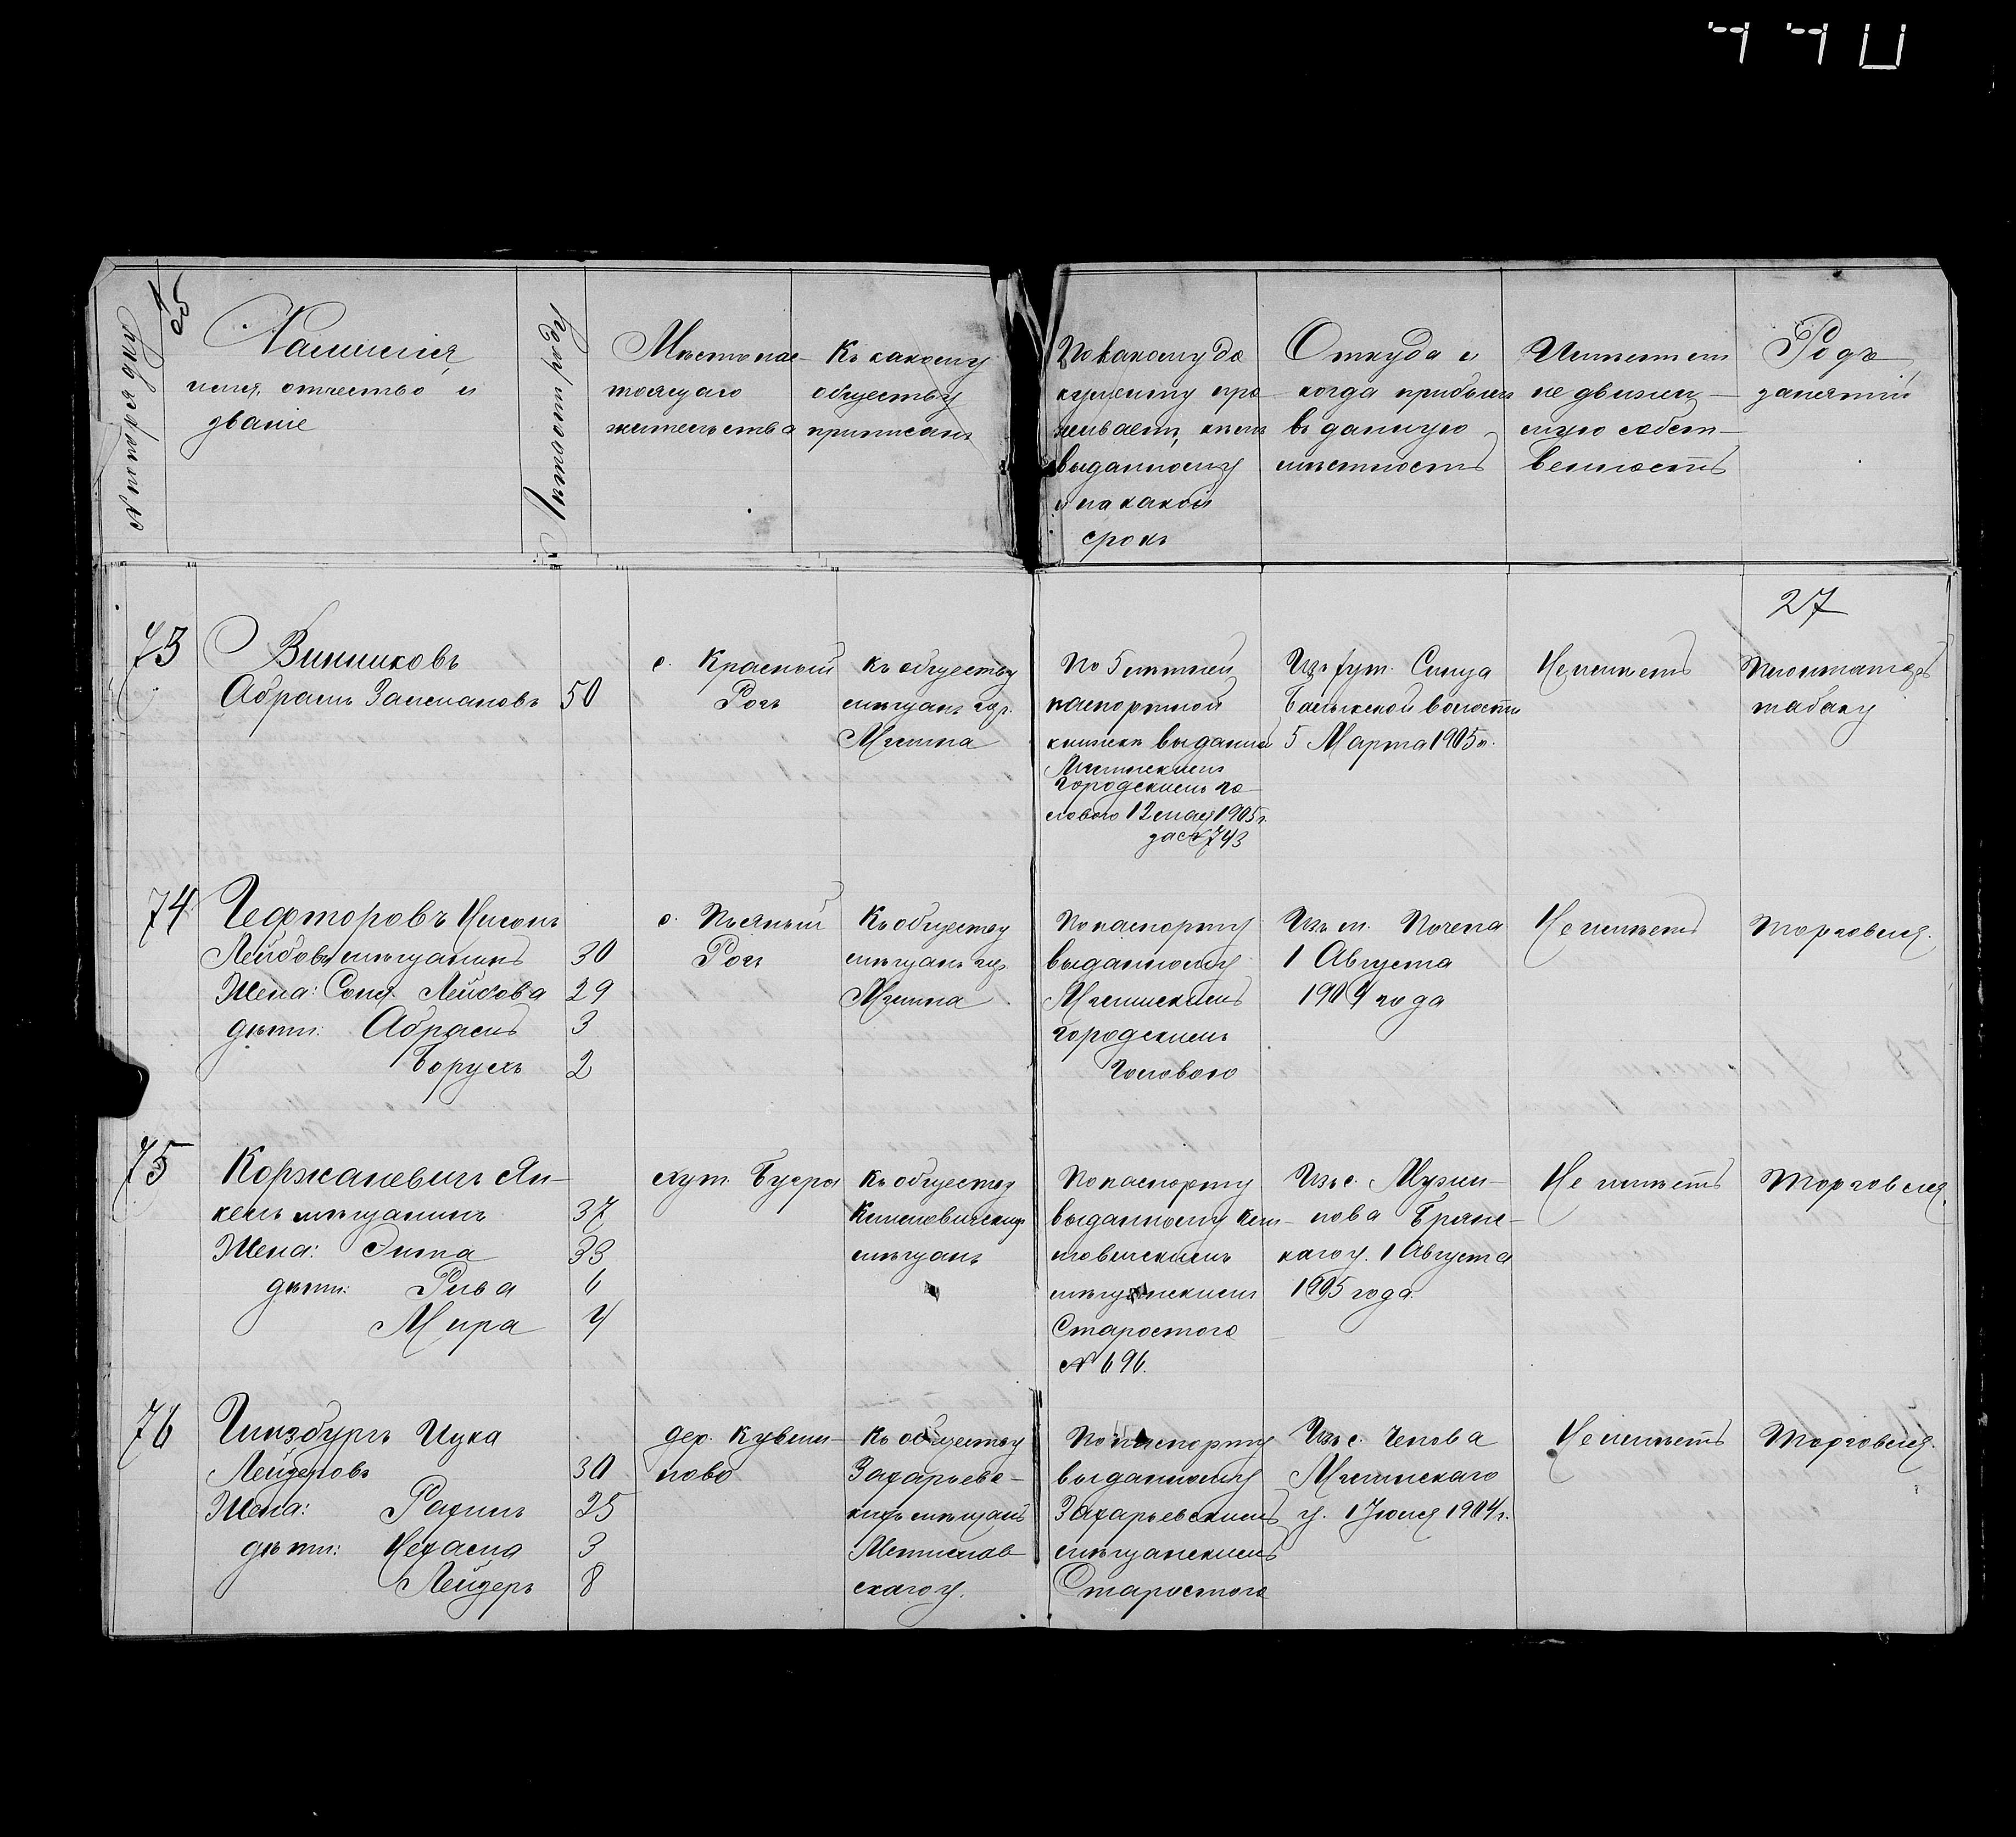 № по порядку
Фамилія,
имя, отчество и
званіе
Лѣтъ отъ роду
Мѣсто нас-
тоящаго
жительства
Къ какому
обществу
приписанъ
По какому до
кументу про
живаетъ, кѣмъ
выданному
и на какой
срокъ
Откуда и
когда прибылъ
въ данную
мѣстность
Имѣетъ ли
не движи-
мую собст-
венность
Родъ
занятій
27
73
Винниковъ
Абрамъ Залмановъ 50
с. Красный
Рогъ
къ обществу
мѣщанъ гор.
Мглина
По 5 лѣтней
паспортной
книжкѣ выданной
Мглинскимъ
Городскимъ го
ловою 12 мая 1905 г.
за № 743
Изъ хут.
волости
5 Марта 1905 г.
Не имѣетъ
Плантаторъ
табаку
74
Гефторовъ Нисонъ
Лейбовъ мѣщанинъ 30
Жена: Соня Лейбова 29
дѣти: Абрамъ 3
Борухъ 2
с. Пьяный
Рогъ
Къ обществу
мѣщанъ гор.
Мглина
По паспорту
выданному
Мглинскимъ
городскимъ
Головою
Изъ м. Почепа
1 Августа
1904 года
Не имѣетъ
Торговля.
75
Коржаневичъ Ян-
кель мѣщанинъ 37
Жена: Эта 33
дѣти: Рива 6
Мира 4
хут. Бугры
Къ обществу
Климовичскихъ
мѣщанъ
По паспорту
выданному Кли-
мовичскимъ
мѣщанскимъ
Старостою
№ 696.
Изъ с.
нова Брянс-
каго у. 1 Августа
1905 года.
Не имѣетъ
Торговля.
76
Гинзбургъ Цука
Лейзеровъ 30
Жена: Рахиль 25
дѣти: Нехама 3
Лейзеръ 8
дер. Кувши-
ново
Къ обществу
Захарьевс-
кихъ мѣщанъ
Мстислав
скаго у.
По паспорту
выданному
Захарьевскимъ
мѣщанскимъ
Старостою
Изъ с. Чепова
Мглинскаго
у. 1 Іюля 1904 г.
Не имѣетъ
Торговля.